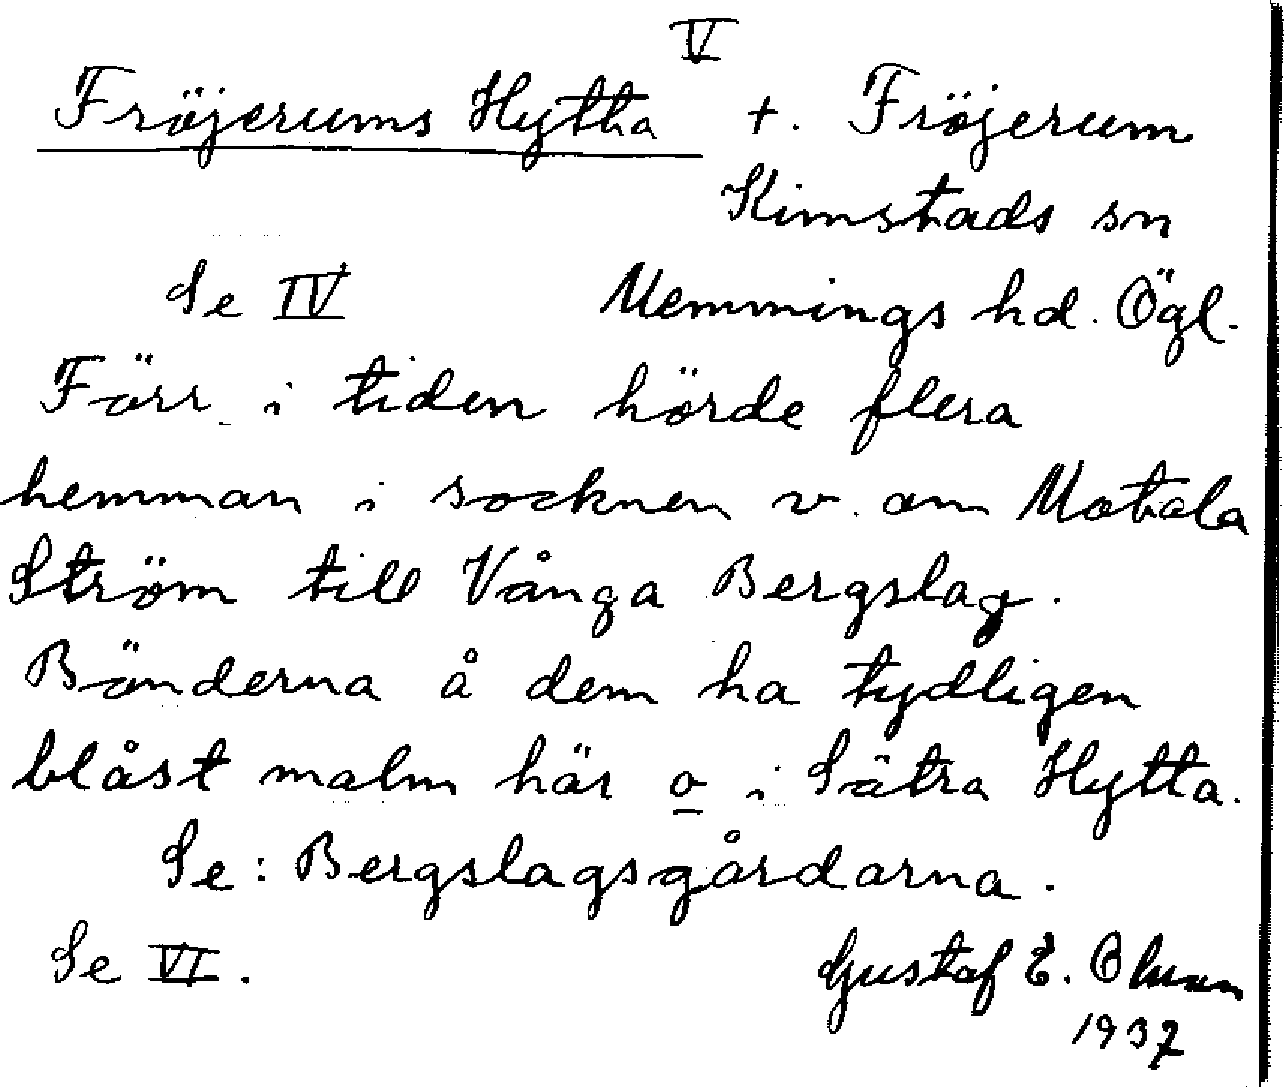 V
Fröjerums Hytta + . Fröjerum
Kimstads sn
Se IV Memmings hd. Ögl.
Förr i tiden hörde flera
hemman i socknen v. om Motala
Ström till Vånga Bergslag.
Bönderna å dem ha tydligen
blåst malm här o i Sätra Hytta.
Se: Bergslagsgårdarna.
Se VI. Gustaf E.
1937